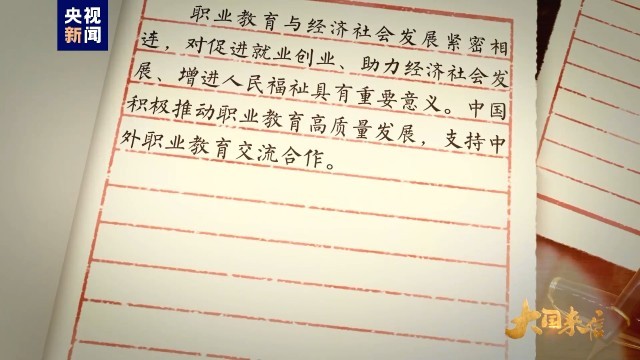 央视
新闻
职业教育与经济社会发展紧密相
连，对促进就业创业、助力经济社会发
展、增进人民福祉具有重要意义。中国
积极推动职业教育高质量发展，支持中
外职业教育交流合作。
大国来信